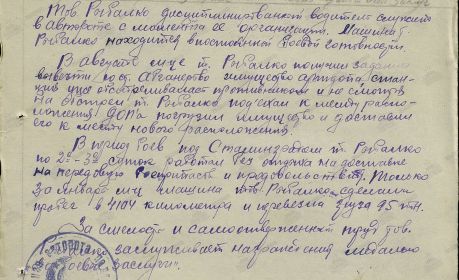 Тов. Рыбалко дисциплинированный водитель служит
в автороте с момента ее организации. Машина т.
Рыбалко находится в постоянной боевой готовности.
В августе м-це т. Рыбалко получил задание
вывезти со ст. Абганерово имущество артдопа, стан-
ция уже обстреливалась противником и не смотря
на обстрел т. Рыбалко подъехал к месту распо-
ложения ДОПа погрузил имущество и доставил
его к месту нового расположения.
В период боев под Сталинградом т. Рыбалко
по 2-3е суток работал без отдыха на доставке
на передовую боеприпасов и продовольствия. Только
за январь м-ц машина тов. Рыбалко сделала
пробег в 4104 километра и перевезла груза 95 тн.
За смелость и самоотверженный труд тов.
заслуживает награждения медалью
заслуги".